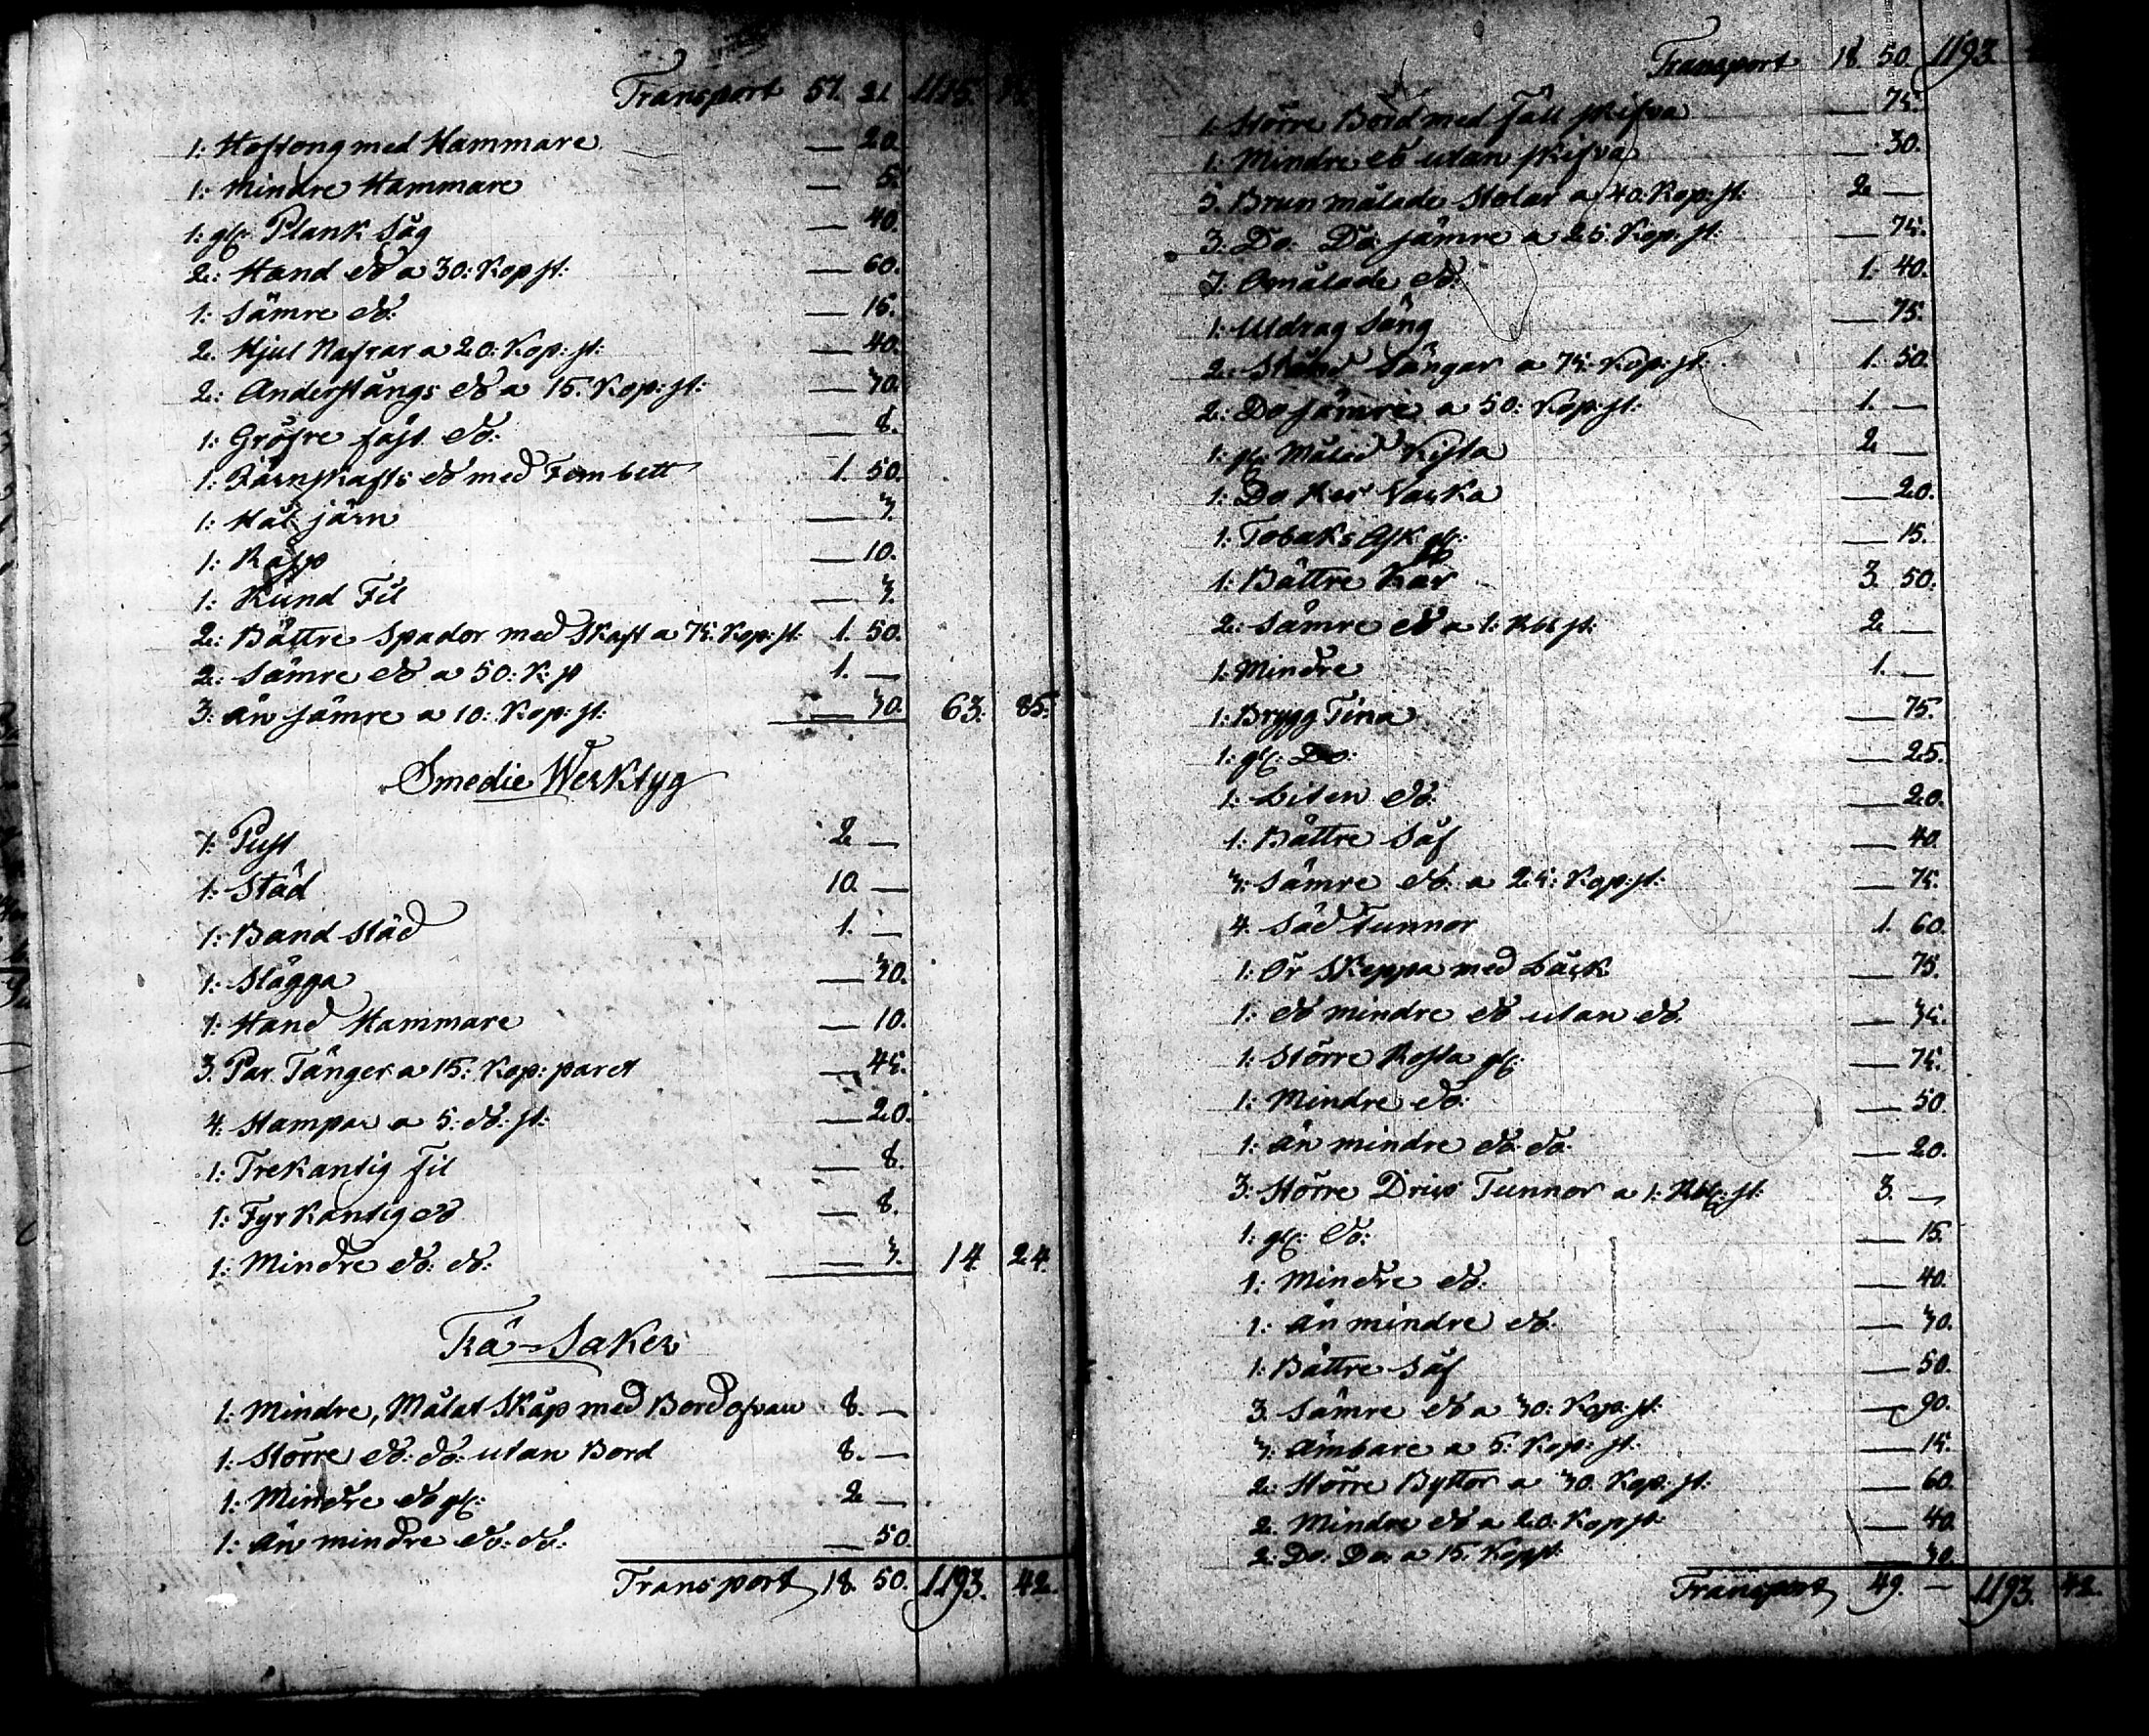 Transport 57. 21 1115.
1: Hoftong med Hammare — 20.
1: Mindre Hammare — 5.
1: gl: Plank Såg — 40.
2: Hand do a 30: Kop st: — 60.
1: Sämre do: — 15.
2. Hjul Nafrar a 20: Kop: st: — 40.
2: Anderstångs do a 15. Kop: st: — 30.
1: Gröfre do: — 8.
1: Järnskafts do med Fem bett 1. 50.
1: Hål järn — 3.
1: Rasp — 10.
1: Rund Fil — 3.
2: Bättre Spador med Skaft a 75. Kop: st: 1. 50.
2: Sämre do a 50: K: st 1. —
3: än sämre a 10: Kop: st: — 30. 63. 85.
Smedie Werktyg
1: Pust 2 —
1: Städ 10. —
1: Band städ 1. —
1: Slägga — 30.
1: Hand Hammare — 10.
3. Par Tänger a 15: Kop: paret — 45.
4: Stampar a 5: do: st: — 20.
1: Trekantig fil — 8.
1: Fyrkantig do — 8.
1: Mindre do: do: — 3. 14. 24.
Trä-Saker
1: Mindre, Målat Skåp med Bord ofvan 8. —
1: Större do: do: utan Bord 8. —
1: Mindre do gl: 2 —
1: än mindre do: do: — 50.
Transport 18. 50. 1193. 42.
Transport 18. 50. 1193.
1. Större Bord med Fäll skifva — 75.
1: Mindre do utan skifva — 30.
5. Brun målade Stolar a 40: Kop: st: 2 —
3: Do: Do: sämre a 25: Kop: st: — 75.
7: Omålade do: 1. 40.
1: Utdrag Säng — 75.
2: Sängar a 75: Kop: st: 1. 50.
2: Do sämre a 50: Kop: st: 1. —
1: gl: Målad Kista 2 —
1: Do — 20.
1: Tobaks Ask gl: — 15.
1: Bättre Kar 3. 50.
2: Sämre do a 1: Rbl st: 2 —
1: Mindre 1. —
1: Brygg Tina — 75.
1: gl: Do: — 25.
1: Liten do: — 20.
1: Bättre Så — 40.
3: Sämre do: a 25: Kop: st: — 75.
4. Säd Tunnor 1. 60.
1: Ör Skeppa med Läck — 75.
1: do mindre do utan do. — 35.
1: Större gl: — 75.
1: Mindre do: — 50.
1: än mindre do: do: — 20.
3: Större Tunnor a 1: Rbl: st: 3. —
1: gl: do: — 15.
1: Mindre do: — 40.
1: än mindre do: — 30.
1: Bättre Så — 50.
3. Sämre do a 30: Kop: st: — 90.
3: Ämbare a 5: Kop: st: — 15.
2. Större Byttor a 30. Kop: st: — 60.
2. Mindre do a 20: Kop st: — 40.
2: Do: Do: a 15. Kop st: — 30.
Transport 49. — 1193. 42.